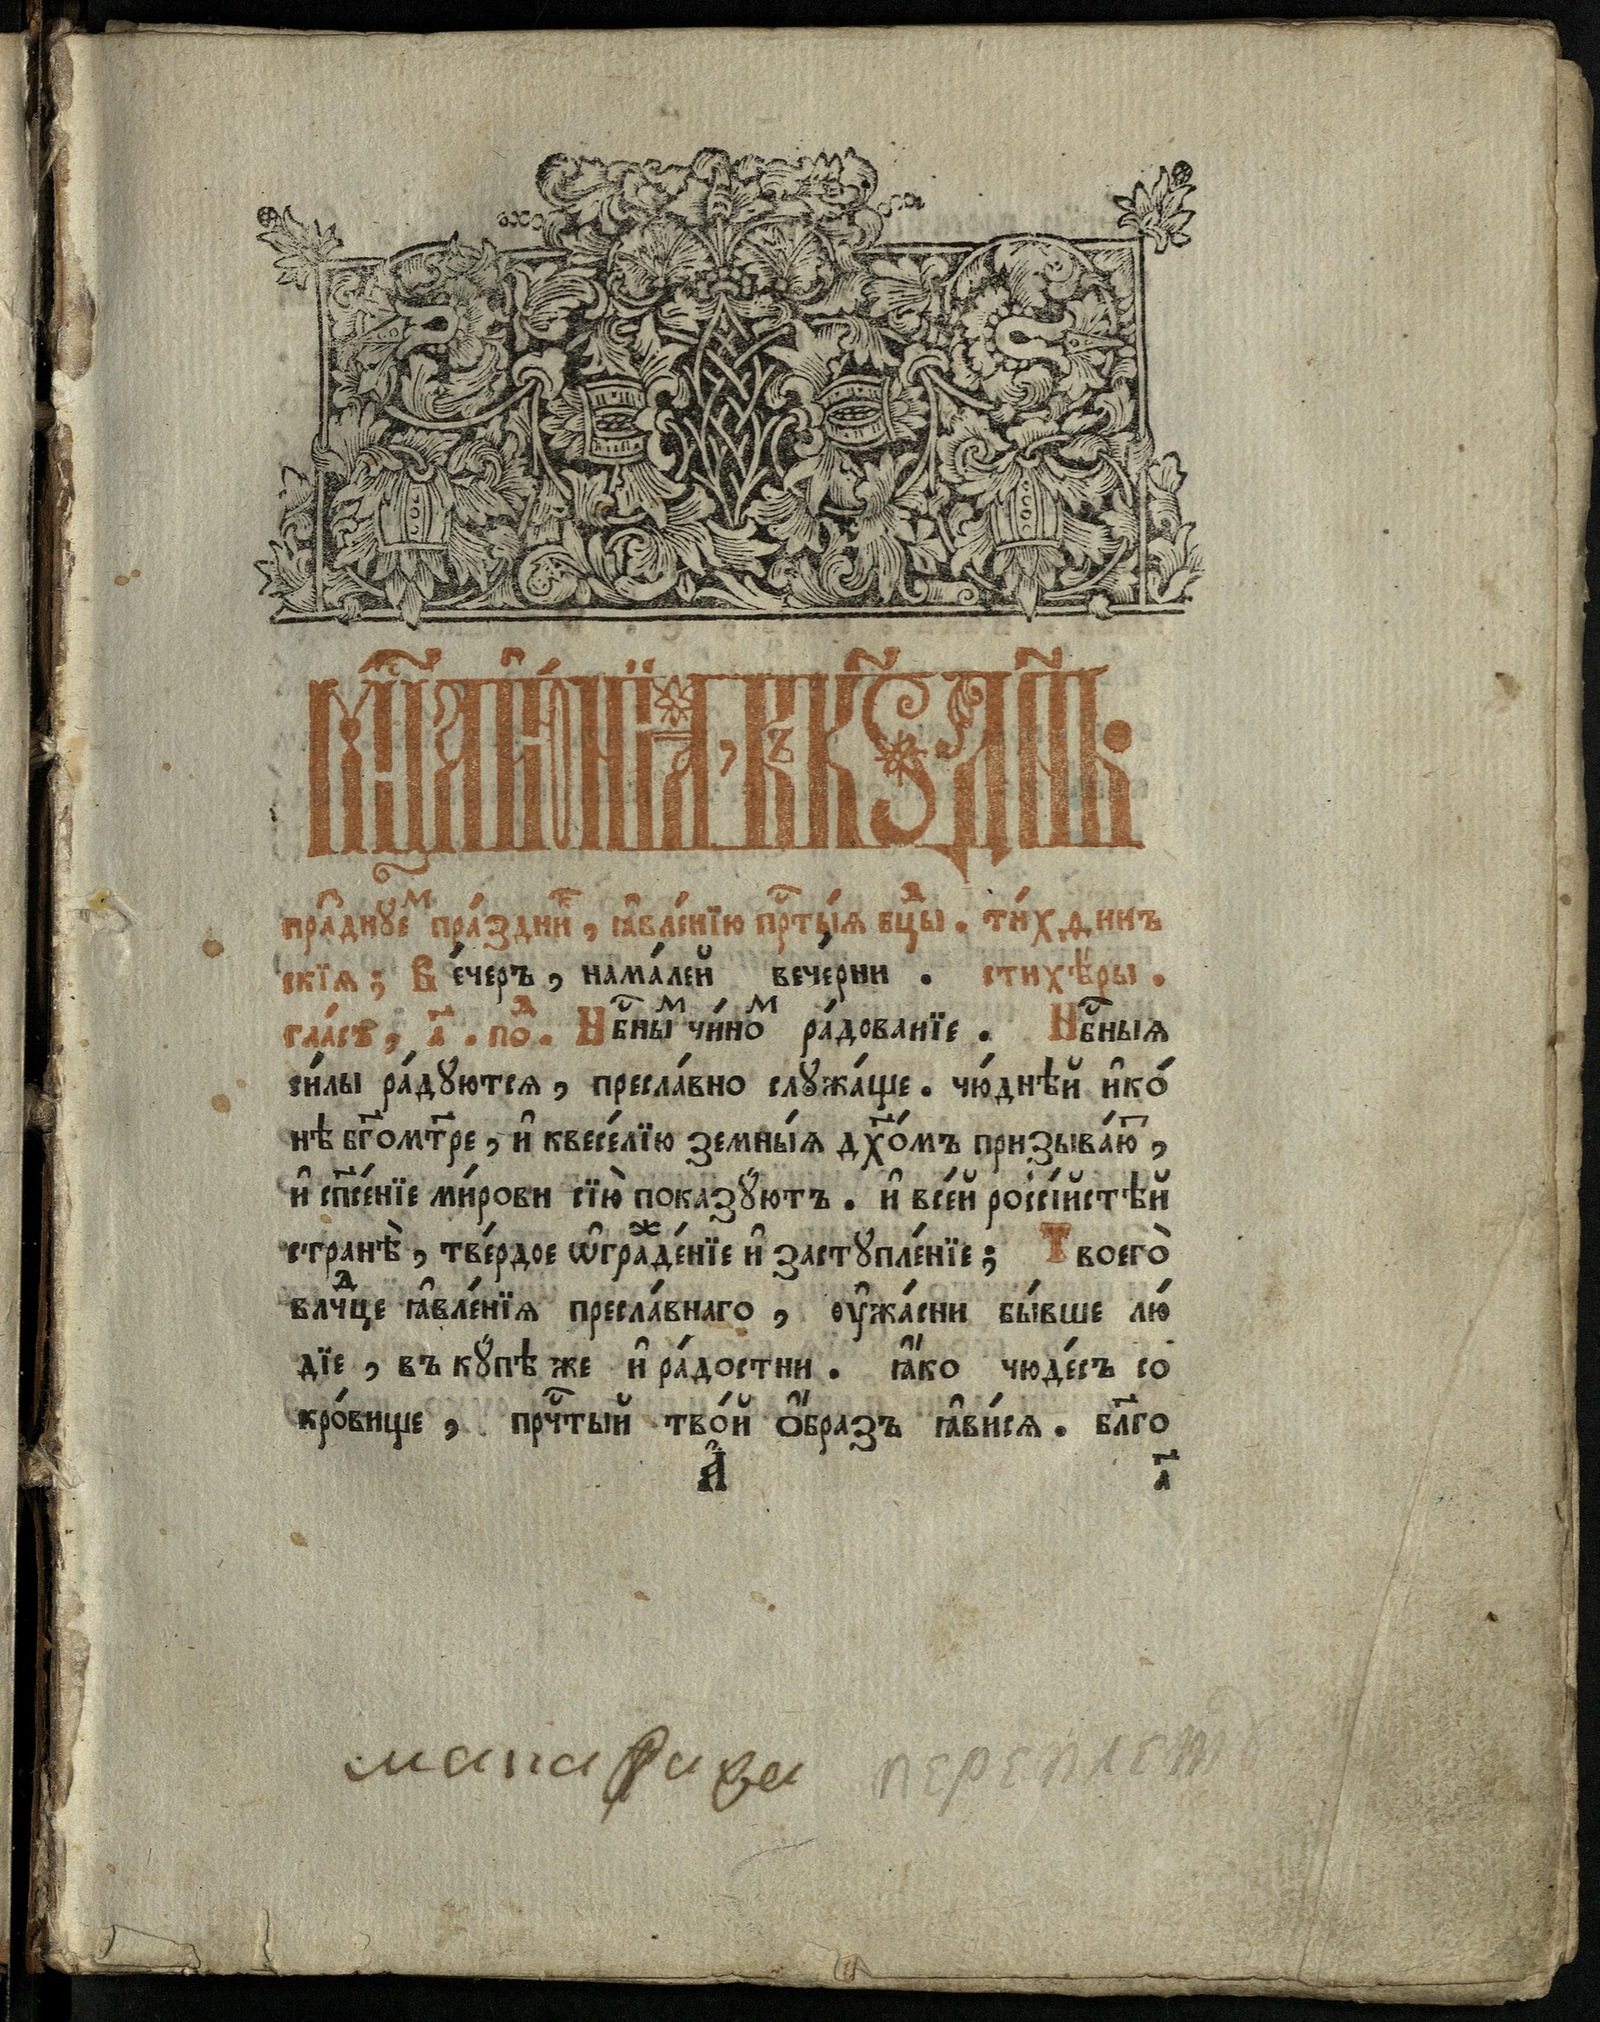 мⷭ҇ца і҆ю́нїѧ, въ к҃ѕ дн҃ь.
пра́днꙋеⷨ пра́здниⷦ҇, ꙗ҆вле́нїю прⷭ҇ты́ѧ бцⷣы. ти́хдинъ
скїѧ; Ве́черъ, нама́лей вече́рни. стихѣ́ры.
гла́съ, а҃. поⷣ. Нбⷭ҇ныⷨ чи́ноⷨ ра́дованїе. Нбⷭ҇ныѧ
си́лы ра́дꙋютсѧ, пресла́вно слꙋжа́ще. чю́днѣй и҆ко́
нѣ бг҃ом҃тре, и҆ квесе́лїю земны́ѧ дх҃о́мъ призыва́ю҃,
и҆ сп҃се́нїе ми́рови сїю̀ показꙋ́ютъ. и҆ все́й россі́йстѣй
странѣ̀, тве́рдое ѡ҆граⷤде́нїе и҆ застꙋпле́нїе; Твоегѡ̀
влчⷣце ꙗ҆вле́нїѧ пресла́внаго, оу҆жа́сни бы́вше лю́
дїе, въ кꙋ́пѣ же и҆ ра́достни. ꙗ҆́ко чюде́съ со
кро́вище, прчⷭ҇тый тво́й ѻ҆́бразъ ꙗ҆ви́сѧ. бл҃го
А҆ а҃
переплетъ